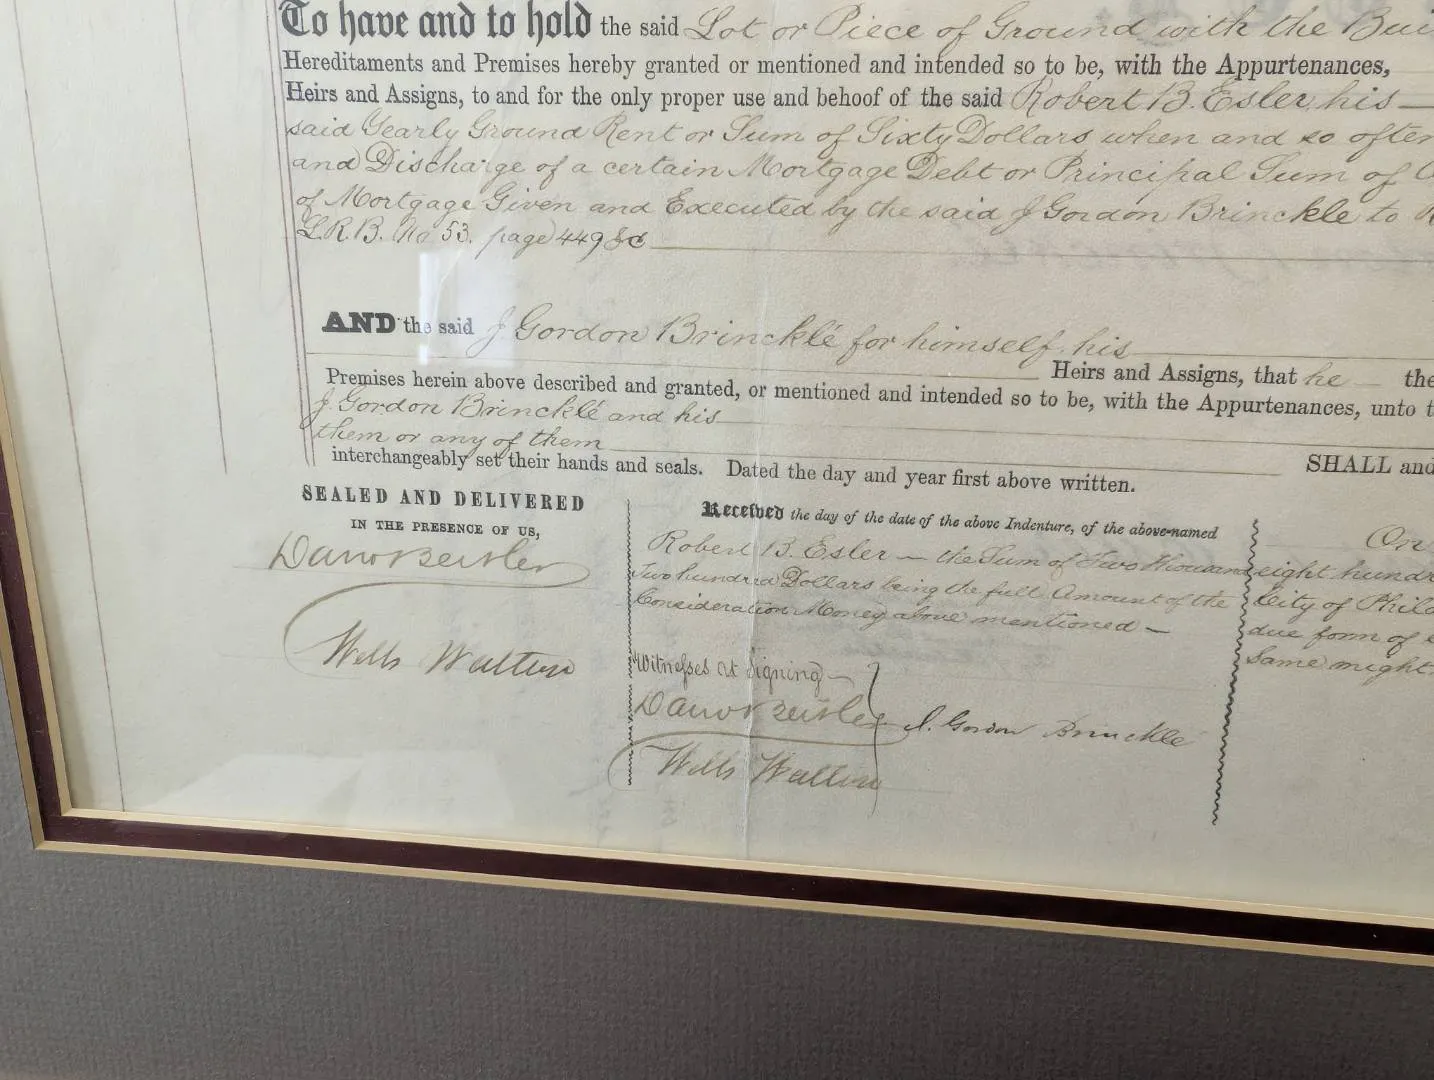 To have and to hold the said Lot or Piece of Ground with the Bui
Hereditaments and Premises hereby granted or mentioned and intended so to be, with the Appurtenances,
Heirs and Assigns, to and for the only proper use and behoof of the said Robert B. Esler his
said Yearly Ground Rent or Sum of Sixty Dollars when and so often
and Discharge of a certain Mortgage Debt or Principal Sum of
of Mortgage Given and Executed by the said J Gordon Brinckle to
L.R.B. No 53. page 449 &c
AND the said J Gordon Brincklé for himself, his
Heirs and Assigns, that he the
Premises herein above described and granted, or mentioned and intended so to be, with the Appurtenances, unto t
J. Gordon Brincklé and his
them or any of them
SHALL and
interchangeably set their hands and seals. Dated the day and year first above written.
SEALED AND DELIVERED
IN THE PRESENCE OF US,
Wells Walton
Received the day of the date of the above Indenture, of the above-named
Robert B. Esler — the Sum of Two thousand
Two hundred Dollars being the full Amount of the
Consideration Money above mentioned —
Witnesses at Signing
J. Gordon Brinckle
Wells Walton
On
eight hundr
City of Phila
due form of
Same might